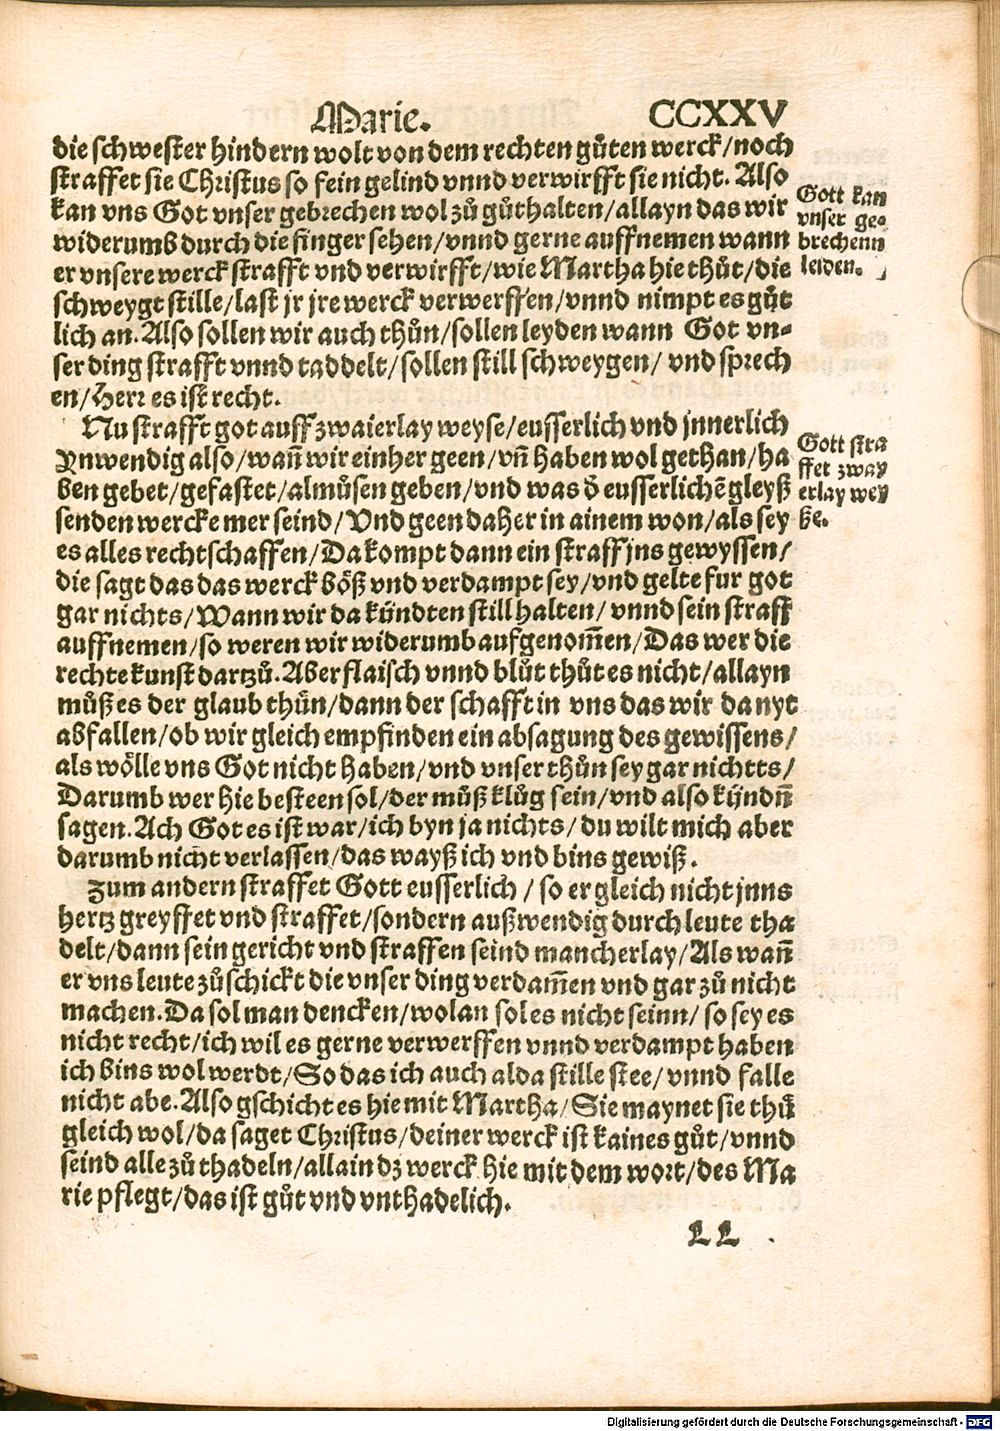 Marie. CCXXV
die schwester hindern wolt von dem rechten gůten werck/noch
straffet sie Christus so fein gelind vnnd verwirfft sie nicht. Also
kan vns Got vnser gebrechen wol zů gůthalten/allayn das wir
widerumb durch die finger sehen/vnnd gerne auffnemen wann
er vnsere werck strafft vnd verwirfft/wie Martha hie thůt/die
schweygt stille/last jr jre werck verwerffen/vnnd nimpt es gůt
lich an. Also sollen wir auch thůn/sollen leyden wann Got vn-
ser ding strafft vnnd taddelt/sollen still schweygen/ vnd sprech
en/Herr es ist recht.
Gott kan
vnser ge-
brechenn
leiden.
Nu strafft got auff zwaierlay weyse/eusserlich vnd jnnerlich
Ynwendig also/wañ wir einher geen/vñ haben wol gethan/ha
ben gebet/gefastet/almůsen geben/vnd was d̕ eusserlichē gleyß
senden wercke mer seind/Vnd geen daher in ainem won/als sey
es alles rechtschaffen/Da kompt dann ein straff jns gewyssen/
die sagt das das werck böß vnd verdampt sey/vnd gelte fur got
gar nichts/Wann wir da kündten still halten/vnnd sein straff
auffnemen/so weren wir widerumb aufgenom̄en/Das wer die
rechte kunst dartzů. Aber flaisch vnnd blůt thůt es nicht/allayn
můß es der glaub thůn/dann der schafft in vns das wir da nyt
abfallen/ob wir gleich empfinden ein absagung des gewissens/
als wölle vns Got nicht haben/vnd vnser thůn sey gar nichtts/
Darumb wer hie besteen sol/der můß klůg sein/vnd also kündñ
sagen. Ach Got es ist war/ich byn ja nichts/du wilt mich aber
darumb nicht verlassen/das wayß ich vnd bins gewiß.
Gott stra
ffet zway
erlay wey
ße.
Zum andern straffet Gott eusserlich/so er gleich nicht jnns
hertz greyffet vnd straffet/sondern außwendig durch leute tha
delt/dann sein gericht vnd straffen seind mancherlay/Als wañ
er vns leute zůschickt die vnser ding verdam̄en vnd gar zů nicht
machen. Da sol man dencken/wolan sol es nicht seinn/so sey es
nicht recht/ich wil es gerne verwerffen vnnd verdampt haben
ich bins wol werdt/So das ich auch alda stille stee/vnnd falle
nicht abe. Also gschicht es hie mit Martha/Sie maynet sie thů
gleich wol/da saget Christus/deiner werck ist kaines gůt/vnnd
seind alle zů thadeln/allain dz werck hie mit dem wort/des Ma
rie pflegt/das ist gůt vnd vnthadelich.
LL
Digitalisierung gefördert durch die Deutsche Forschungsgemeinschaft - DFG